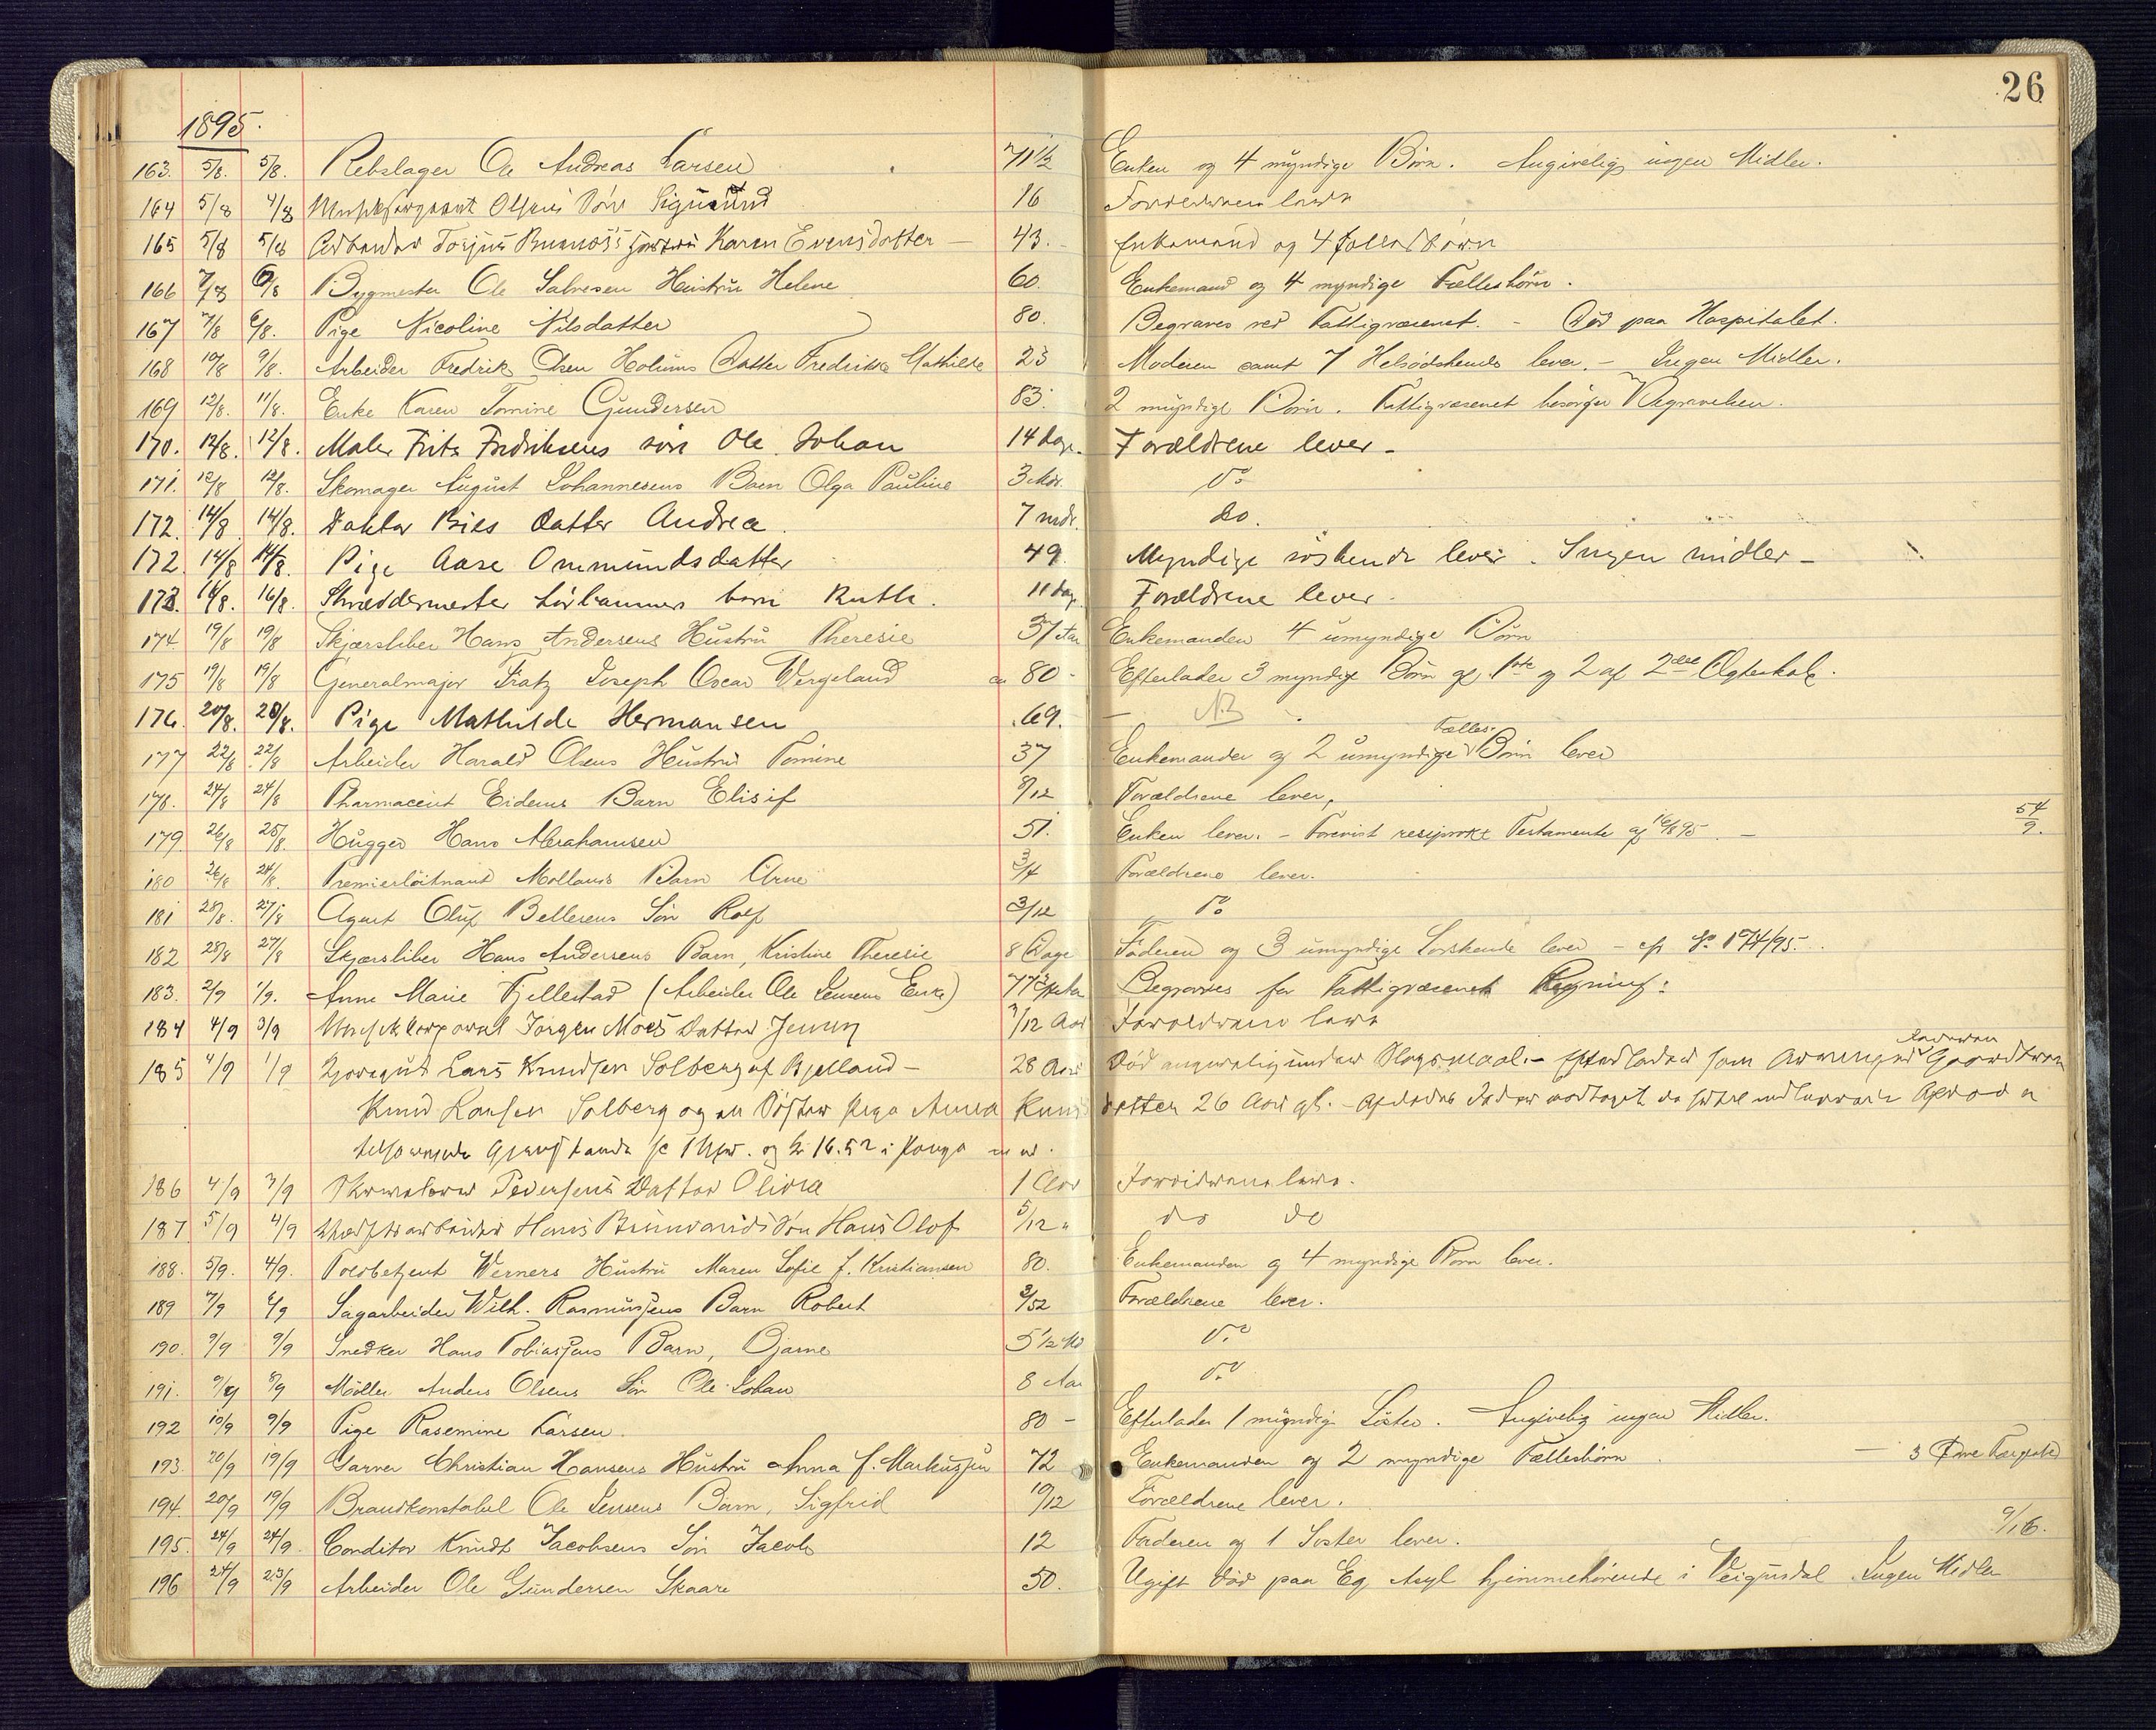 26
1895.
163. 5/8. 5/8. Rebslager Ole Andreas Larsen 71 1/2 Enken og 4 myndige Børn. Angivelig ingen Midler.
164 5/8 4/8 Olsens Søn Sigmund 16 Forældrene lever
165 5/8 5/8 Arbeider Torjus Hustru Karen Evensdatter — 43. Enkemand og 4 Fællesbørn
166 7/8 6/8 Bygmester Ole Salvesen Hustru Helene 60. Enkemand og 4 myndige Fællesbørn.
167 7/8 6/8. Pige Nicoline Nilsdatter 80. Begraves ved Fattigvæsenet. - Død paa Hospitalet.
168 10/8 9/8. Arbeider Fredrik Olsen Holums Datter Fredrikke Mathilde 23 Moderen samt 7 Helsødskende lever. - Ingen Midler.
169 12/8. 11/8. Enke Karen Tomine Gundersen 83. 2 myndige Børn. Fattigvæsenet besørger Begravelsen.
170. 12/8. 12/8. Maler Fritz Fredriksens søn Ole Johan 14 dage. Forældrene lever -
171. 12/8 12/8. Skomager August Johannesens Barn Olga Pauline 3 Mdr. Do
172. 14/8 14/8. Doktor Bies datter Andrea. 7 mdr. do.
172. 14/8 14/8. Pige Aase Ommundsdatter 49. Myndige søskende lever. Ingen midler -
173. 16/8. 16/8. Skræddermester barn Ruth. 11 dage Forældrene lever.
174 19/8 19/8 Skjærsliber Hans Andersens Hustru Theresie 37 Aar Enkemanden 4 umyndige Børn
175 19/8 19/8 Generalmajor Joseph Oscar Wergeland ca 80 - Efterlader 3 myndige Børn af 1ste og 2 af 2det Ægteskab.
176. 20/8. 20/8. Pige Mathilde Hermansen 69. — NB -
177 22/8 22/8 Arbeider Harald Olsens Hustru Tomine 37 Enkemanden og 2 umyndige Fælles Børn lever
178. 24/8 24/8 Pharmaceut Eidems Barn Elisif 8/12 Forældrene lever,
179 26/8 25/8. Hugger Hans Abrahamsen 51. Enken lever. - Forevist resiprokt Testamente af 16/8 95. — 54/9.
180 26/8 24/8. Premierløitnant Mollands Barn Arne 3/4 Forældrene lever.
181 28/8. 27/8 Agent Oluf Bellesens Søn Rolf 3/12 Do
182 28/8 27/8 Skjærsliber Hans Andersens Barn, Kristine Theresie 8 Dage Faderen og 3 umyndige Søskende lever - cfr No 174/95.
183. 2/9 1/9. Anne Marie Fjellestad (Arbeider Ole Jensens Enke) 77 Begraves for Fattigvæsenets Regning.
184 4/9 3/9 Jørgen Moes Datter Jenny 7/12 Aar Forældrene lever
185 4/9 1/9 Lars Knudsen Solberg af Bjelland - 28 Aar Død angivelig under Slagsmaal. - Efterlader som Arvinger Faderen Gaardbruger
Knud Larsen Solberg og en Søster Pige Anna Knudsdatter 26 Aar gl. -
tilhørende Gjenstande 1 Uhr. og Kr 16.52 i Penge
186 4/9 3/9 Pedersens Datter Olivia 1 Aar Forældrene lever.
187. 5/9 4/9 Hans Søn Hans Olof 5/12 " do do
188. 5/9. 4/9. Toldbetjent Werners Hustru Maren Sofie f. Kristiansen 80. Enkemanden og 4 myndige Børn lever.
189 7/9 6/9 Sagarbeider Wilh. Rasmussens Barn Robert 3/52 Forældrene lever.
190. 9/9 9/9 Snedker Hans Tobiassens Barn, Bjarne 5 1/2 Md Do
191. 9/9 8/9 Møller Anders Olsens Søn Ole Johan 8 Aar Do
192 10/9 9/9 Pige Rasmine Larsen. 80 - Efterlader 1 myndig Søster. Angivelig ingen Midler.
193. 20/9 19/9 Garver Christian Hansens Hustru Anna f. Markussen 72 Enkemanden og 2 myndige Fællesbørn — 3
194. 20/9 19/9 Brandkonstabel Ole Jensens Barn, Sigfrid 10/12 Forældrene lever.
195. 24/9 24/9 Conditor Knudt Jacobsens Søn Jacob 12 Faderen og 1 Søster lever. 9/16.
196 24/9 23/9 Arbeider Ole Gundersen Skaare 50. Ugift Død paa Eg Asyl hjemmehørende i Veigusdal. Ingen Midler